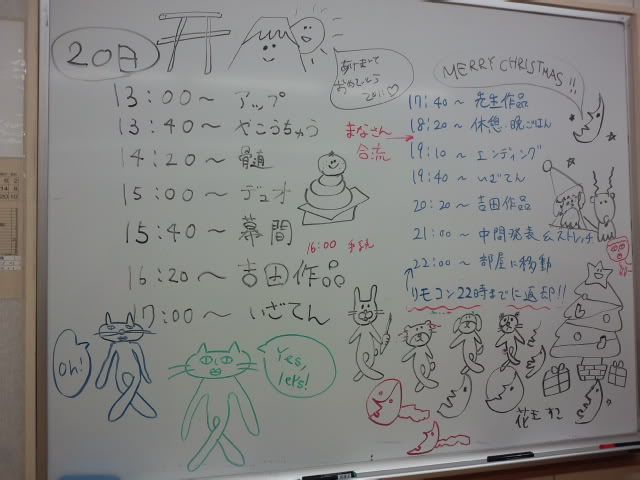 20日
あけまして
おめでとう
2011♡
MERRY CHRISTMAS!!
13:00～ アップ
13:40～ やこうちゅう
14:20～ 骨随
15:00～ デュオ
15:40～ 幕間
16:00
16:20～ 吉田作品
17:00～ いざてん
まなさん
合流
17:40～ 先生作品
18:20～ 休憩 晩ごはん
19:10～ エンディング
19:40～ いざてん
20:20～ 吉田作品
21:00～ 中間発表&ストレッチ
22:00～ 部屋に移動
リモコン22時までに返却!!
Oh!
Yes, let's!